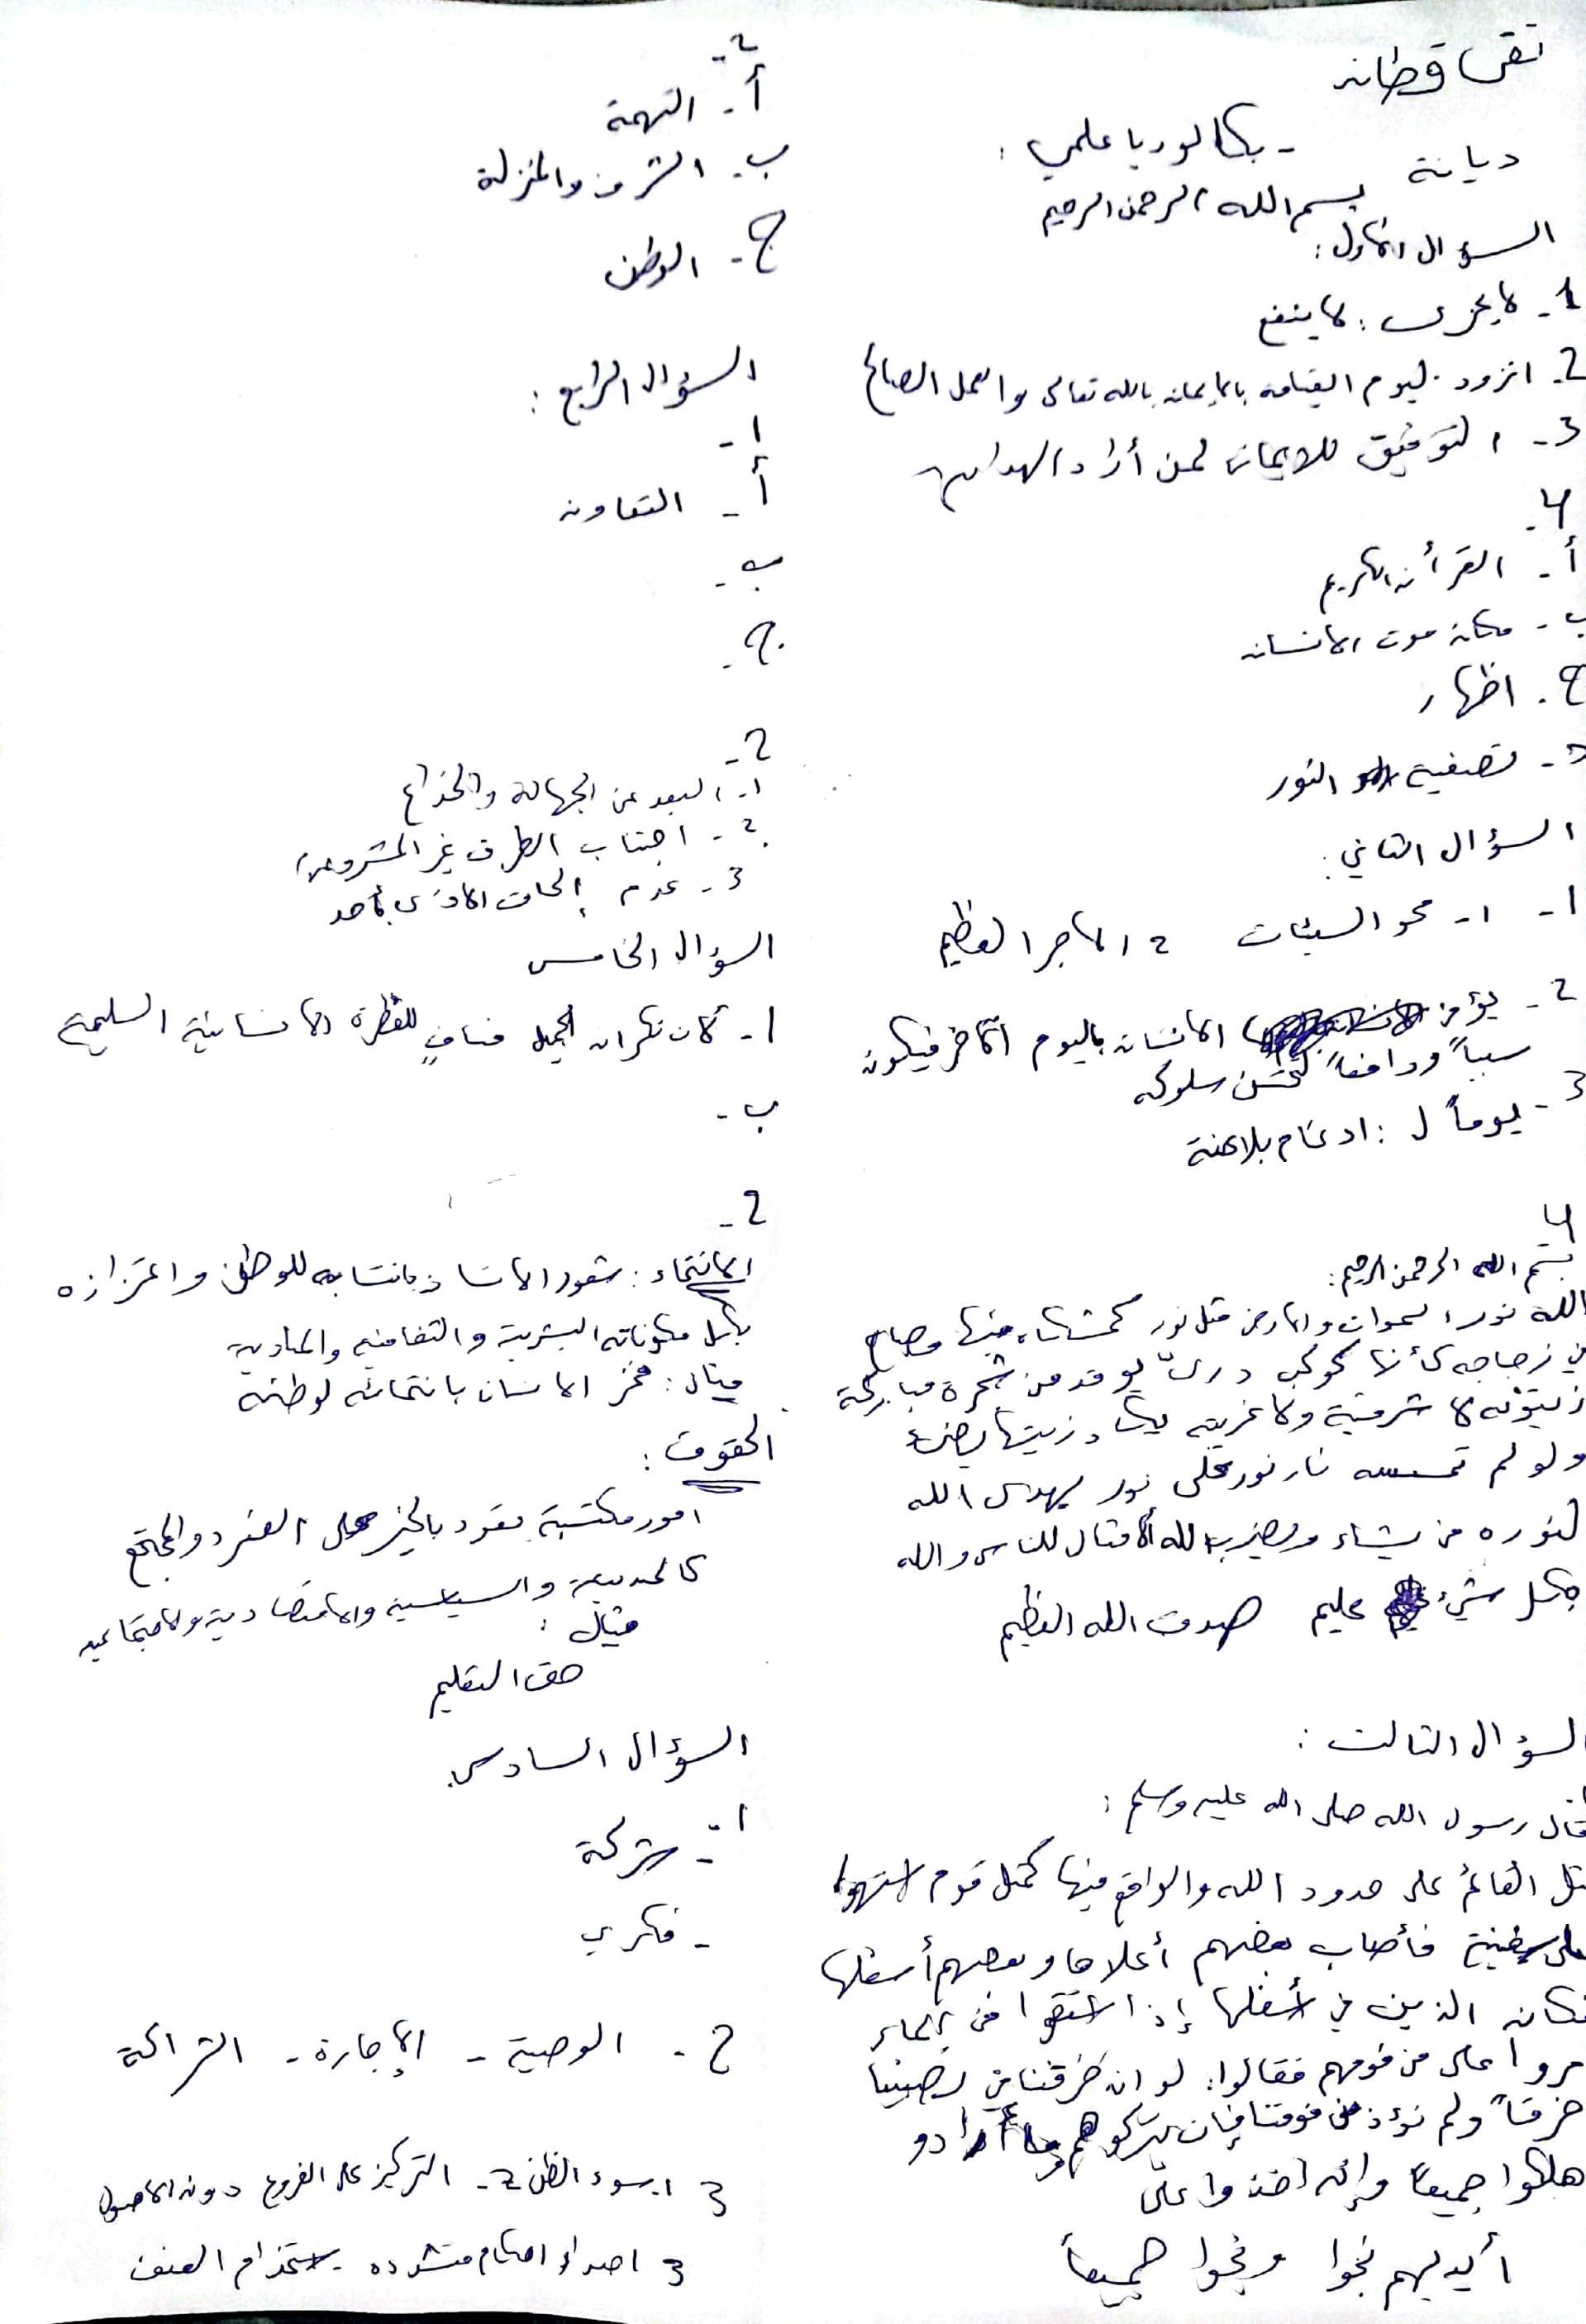 تقى قطان
ديانة - بكالوريا علمي:
بسم الله الرحمن الرحيم
السؤال الأول:
1- لا يجزي: لا ينفع
2- اتزود ليوم القيامة بالإيمان بالله تعالى والعمل الصالح
3- التوفيق للإيمان لمن أراد الهداية
4-
أ- القرآن الكريم
ب- مكان موت الانسان
ج- اظهار
د- تصفية النور
السؤال الثاني:
1- 1- محو السيئات 2 الاجر العظيم
2- يؤمن الانسان باليوم الآخر فيكون
سبباً ودافعاً لتحسن سلوكه
3- يوماً ل: ادغام بلا غنة
4
بسم الله الرحمن الرحيم:
الله نور السموات والارض مثل نور كمشكاة فيها مصباح
في زجاجه كأنها كوكب دريّ يوقد من شجرة مباركة
زيتونه لا شرقية ولا غربيه يكاد زيتها يضيء
ولو لم تمسسه نار نور على نور يهدي الله
لنوره من يشاء ويضرب الله الأمثال للناس والله
بكل شيء عليم صدق الله العظيم
السؤال الثالث:
قال رسول الله صلى الله عليه وسلم:
مثل القائم على حدود الله والواقع فيها كمثل قوم استهموا
على سفينة فأصاب بعضهم أعلاها وبعضهم أسفلها
فكان الذين في أسفلها إذا استقوا من الماء
مروا على من فوقهم فقالوا: لو ان خرقنا في نصيبنا
خرقاً ولم نؤذ من فوقنا فإن يتركوهم وما أرادو
هلكوا جميعاً وإن اخذوا على
أيديهم نجوا ونجوا جميعاً
2-
أ- التهمة
ب- الشرف والمنزلة
ج- الوطن
السؤال الرابع:
1-
أ- التعاون
ب-
ج-
2-
1- البعد عن الجهالة والخداع
2- اجتناب الطرق غير المشروعة
3- عدم إلحاق الاذى بأحد
السؤال الخامس
1- لان نكران الجميل منافٍ للفطرة الانسانية السليمة
ب-
2-
الانتماء: شعور الانسان بانتسابه للوطن واعتزازه
بكل مكوناته البشرية والثقافيه والمادية
مثال: فخر الانسان بانتمائه لوطنه
الحقوق:
امور مكتسبة تعود بالخير على الفرد والمجتمع
كالمدنية والسياسية والاقتصادية والاجتماعيه
مثال:
حق التعليم
السؤال السادس
1- - شركة
- فكري
2- الوصية - الإجارة - الشراكة
3 1- سوء الظن 2- التركيز على الفروع دون الاصول
3 اصدار احكام متشدده - استخدام العنف